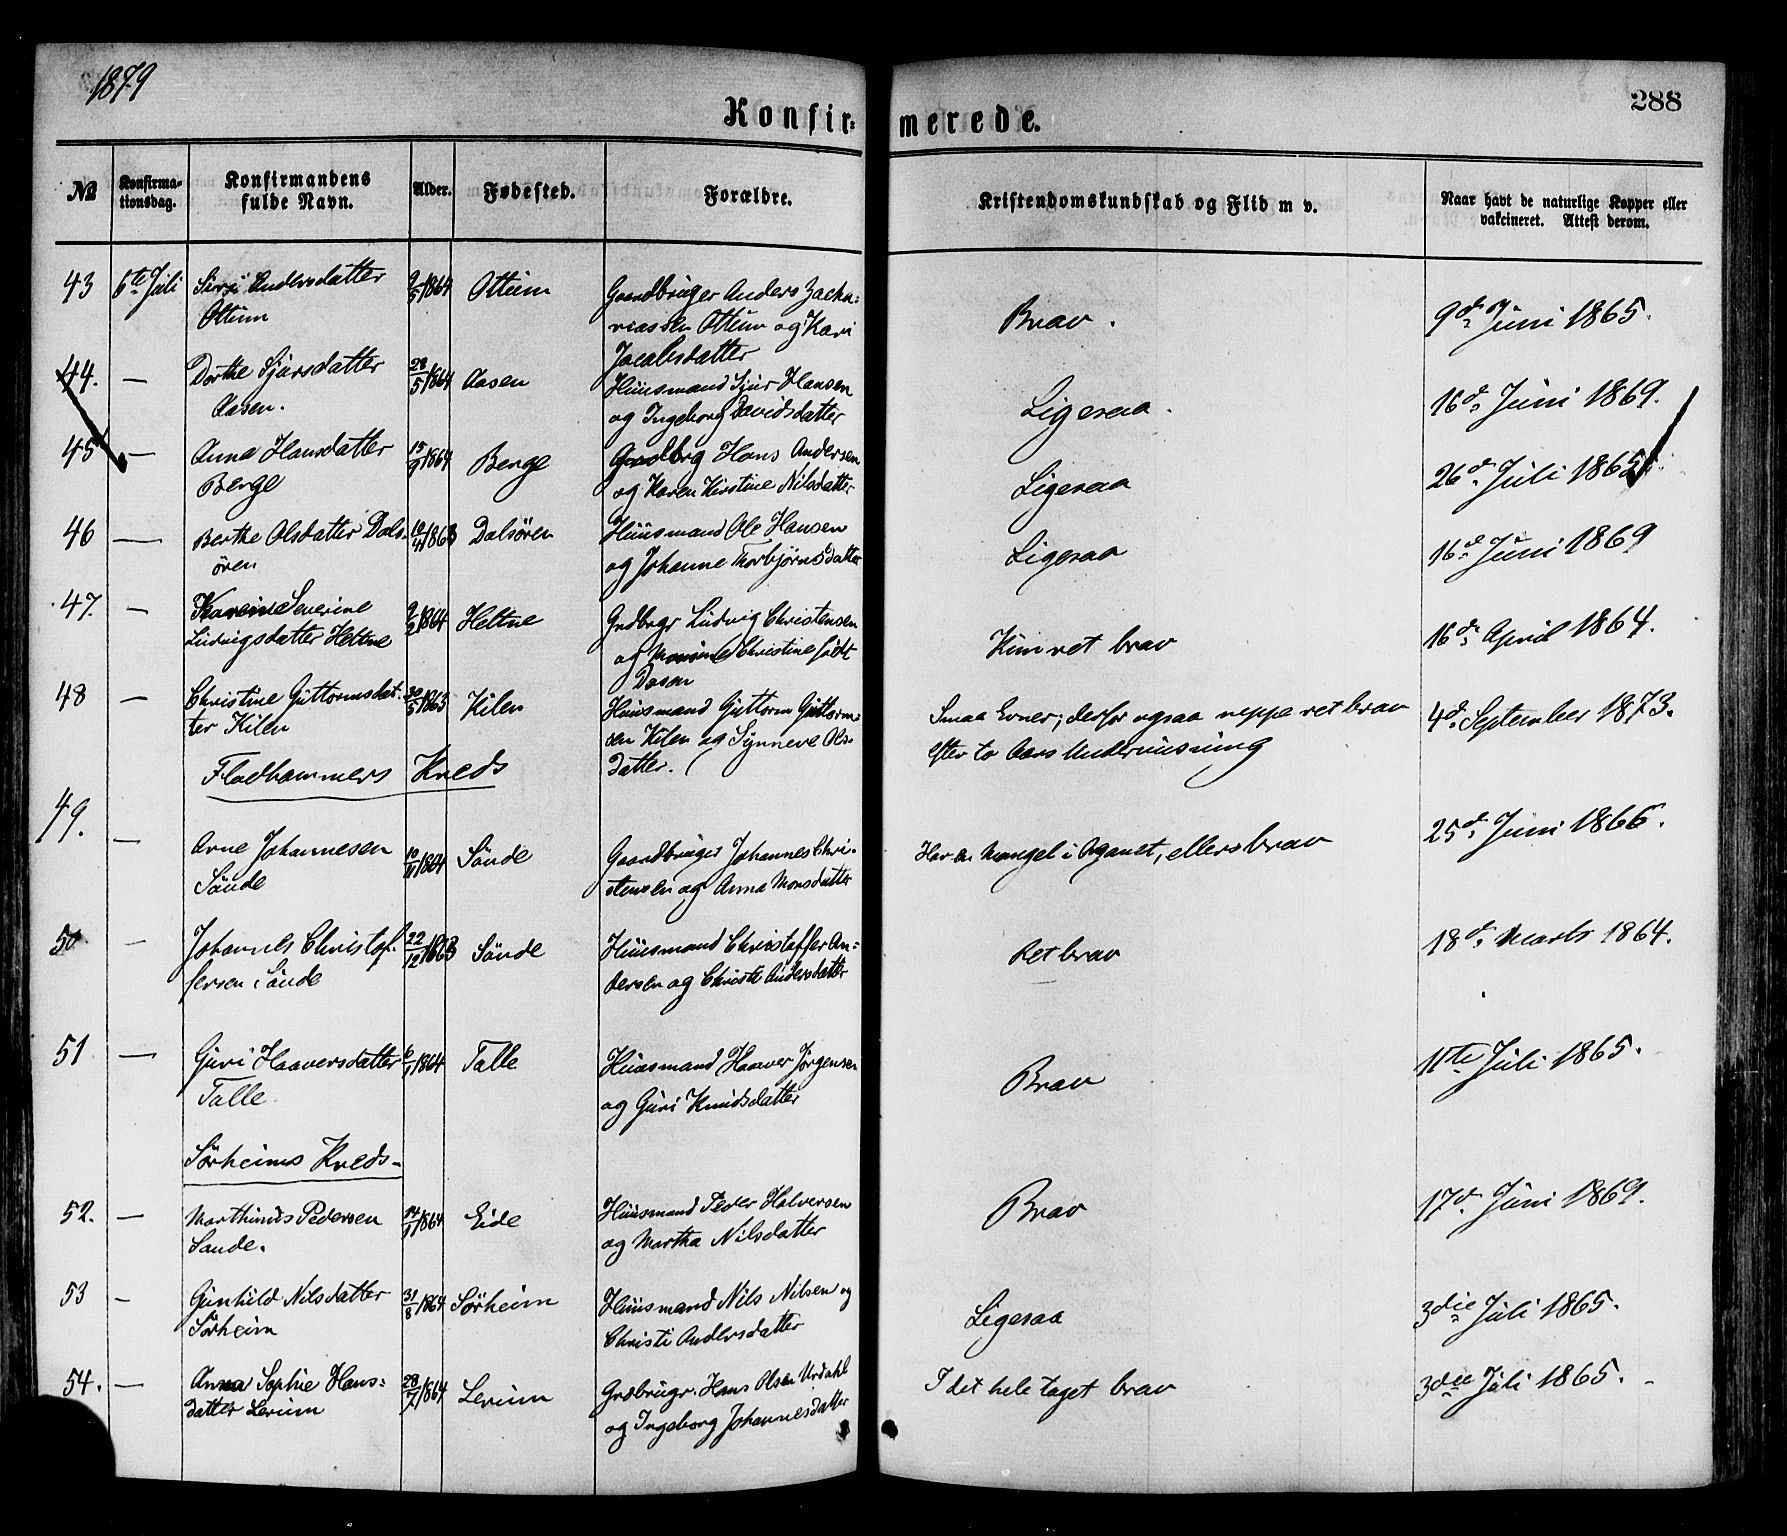 1879
288
Konfirmerede.
No Konfirmationsdag. Konfirmandens fulde Navn. Alder. Fødested. Forældre. Kristendomskundskab og Flid m v. Naar havt de naturlige Kopper eller vakcineret. Attest derom.
43 6te Juli Siri Andersdatter 9/5 1864 Ottum Gaardbruger Anders Zacha=
Ottum riassen Ottum og Kari Brav. 9de Juni 1865.
Jacobsdatter
44. — Dorthe Sjursdatter /5 1864 Aasen Huusmand Sjur Hansen
Aasen. og Ingeborg Davidsdatter Ligesaa. 16de Juni 1869.
45 — Anna Hansdatter 1864 Berge Gardbrg Hans Andersen
Berge og Karen Kirstine Nilsdatter Ligesaa 26de Juli 1865
46 — Berthe Olsdatter Dals- 10/4 1863 Dalsören Huusmand Ole Hansen
ören og Johanne Thorbjørnsdatter Ligesaa 16de Juni 1869
47. — Severine 9/2 1864 Heltne Grdbrgr Ludvig Christensen
Ludvigsdatter Heltne og Christine født Kun ret brav 16de April 1864.
Dosen
48 — Christine Guttormsdat- 30/5 1863 Kilen Huusmand Guttorm Guttorm= Smaa Evner; derfor ogsaa neppe ret brav 4de September 1873.
ter Kilen sen Kilen og Synneve Ols- efter to Aars Undervisning
datter.
Fladhammers Kreds
49. — Arne Johannesen 1864 Sönde Gaardbruger Johannes Chri- Har en Mangel i Organet, ellers brav 25de Juni 1866.
Sönde stensen og Anna Monsdatter
50 — Johannes Christof- 22/12 1863 Sönde Huusmand Christoffer An= Ret brav 18de Marts 1864.
fersen Sönde dersen og Christi Andersdatter
51 — Guri Haaversdatter 1864 Talle Huusmand Haaver Jørgensen
Talle og Guri Knudsdatter Brav 11te Juli 1865.
Sörheims Kreds-
52. — Marthinus Pedersen 1864 Eide Huusmand Peder Halversen
Sande. og Martha Nilsdatter Brav 17de Juni 1869.
53 — Gunhild Nilsdatter 31/8 1864 Sörheim Huusmand Nils Nilsen og
Sörheim Christi Andersdatter Ligesaa 3die Juli 1865.
54. — Anna Sophie Hans= 28/7 1864 Lerum Grdbrugr. Hans Olsen Urdahl I det hele taget brav 3die Juli 1865.
datter Lerum og Ingeborg Johannesdatter